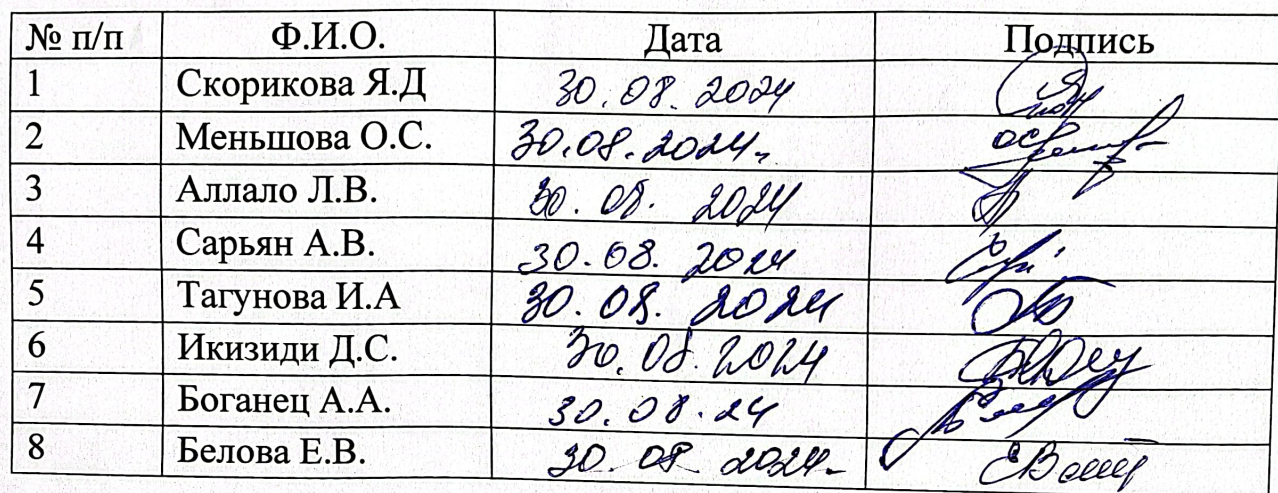 № п/п Ф.И.О. Дата Подпись
1 Скорикова Я.Д 30.08.2024
2 Меньшова О.С. 30.08.2024г
3 Аллало Л.В. 30.08.2024
4 Сарьян А.В. 30.08.2024
5 Тагунова И.А 30.08.2024
6 Икизиди Д.С. 30.08.2024
7 Боганец А.А. 30.08.24
8 Белова Е.В. 30.08 2024г